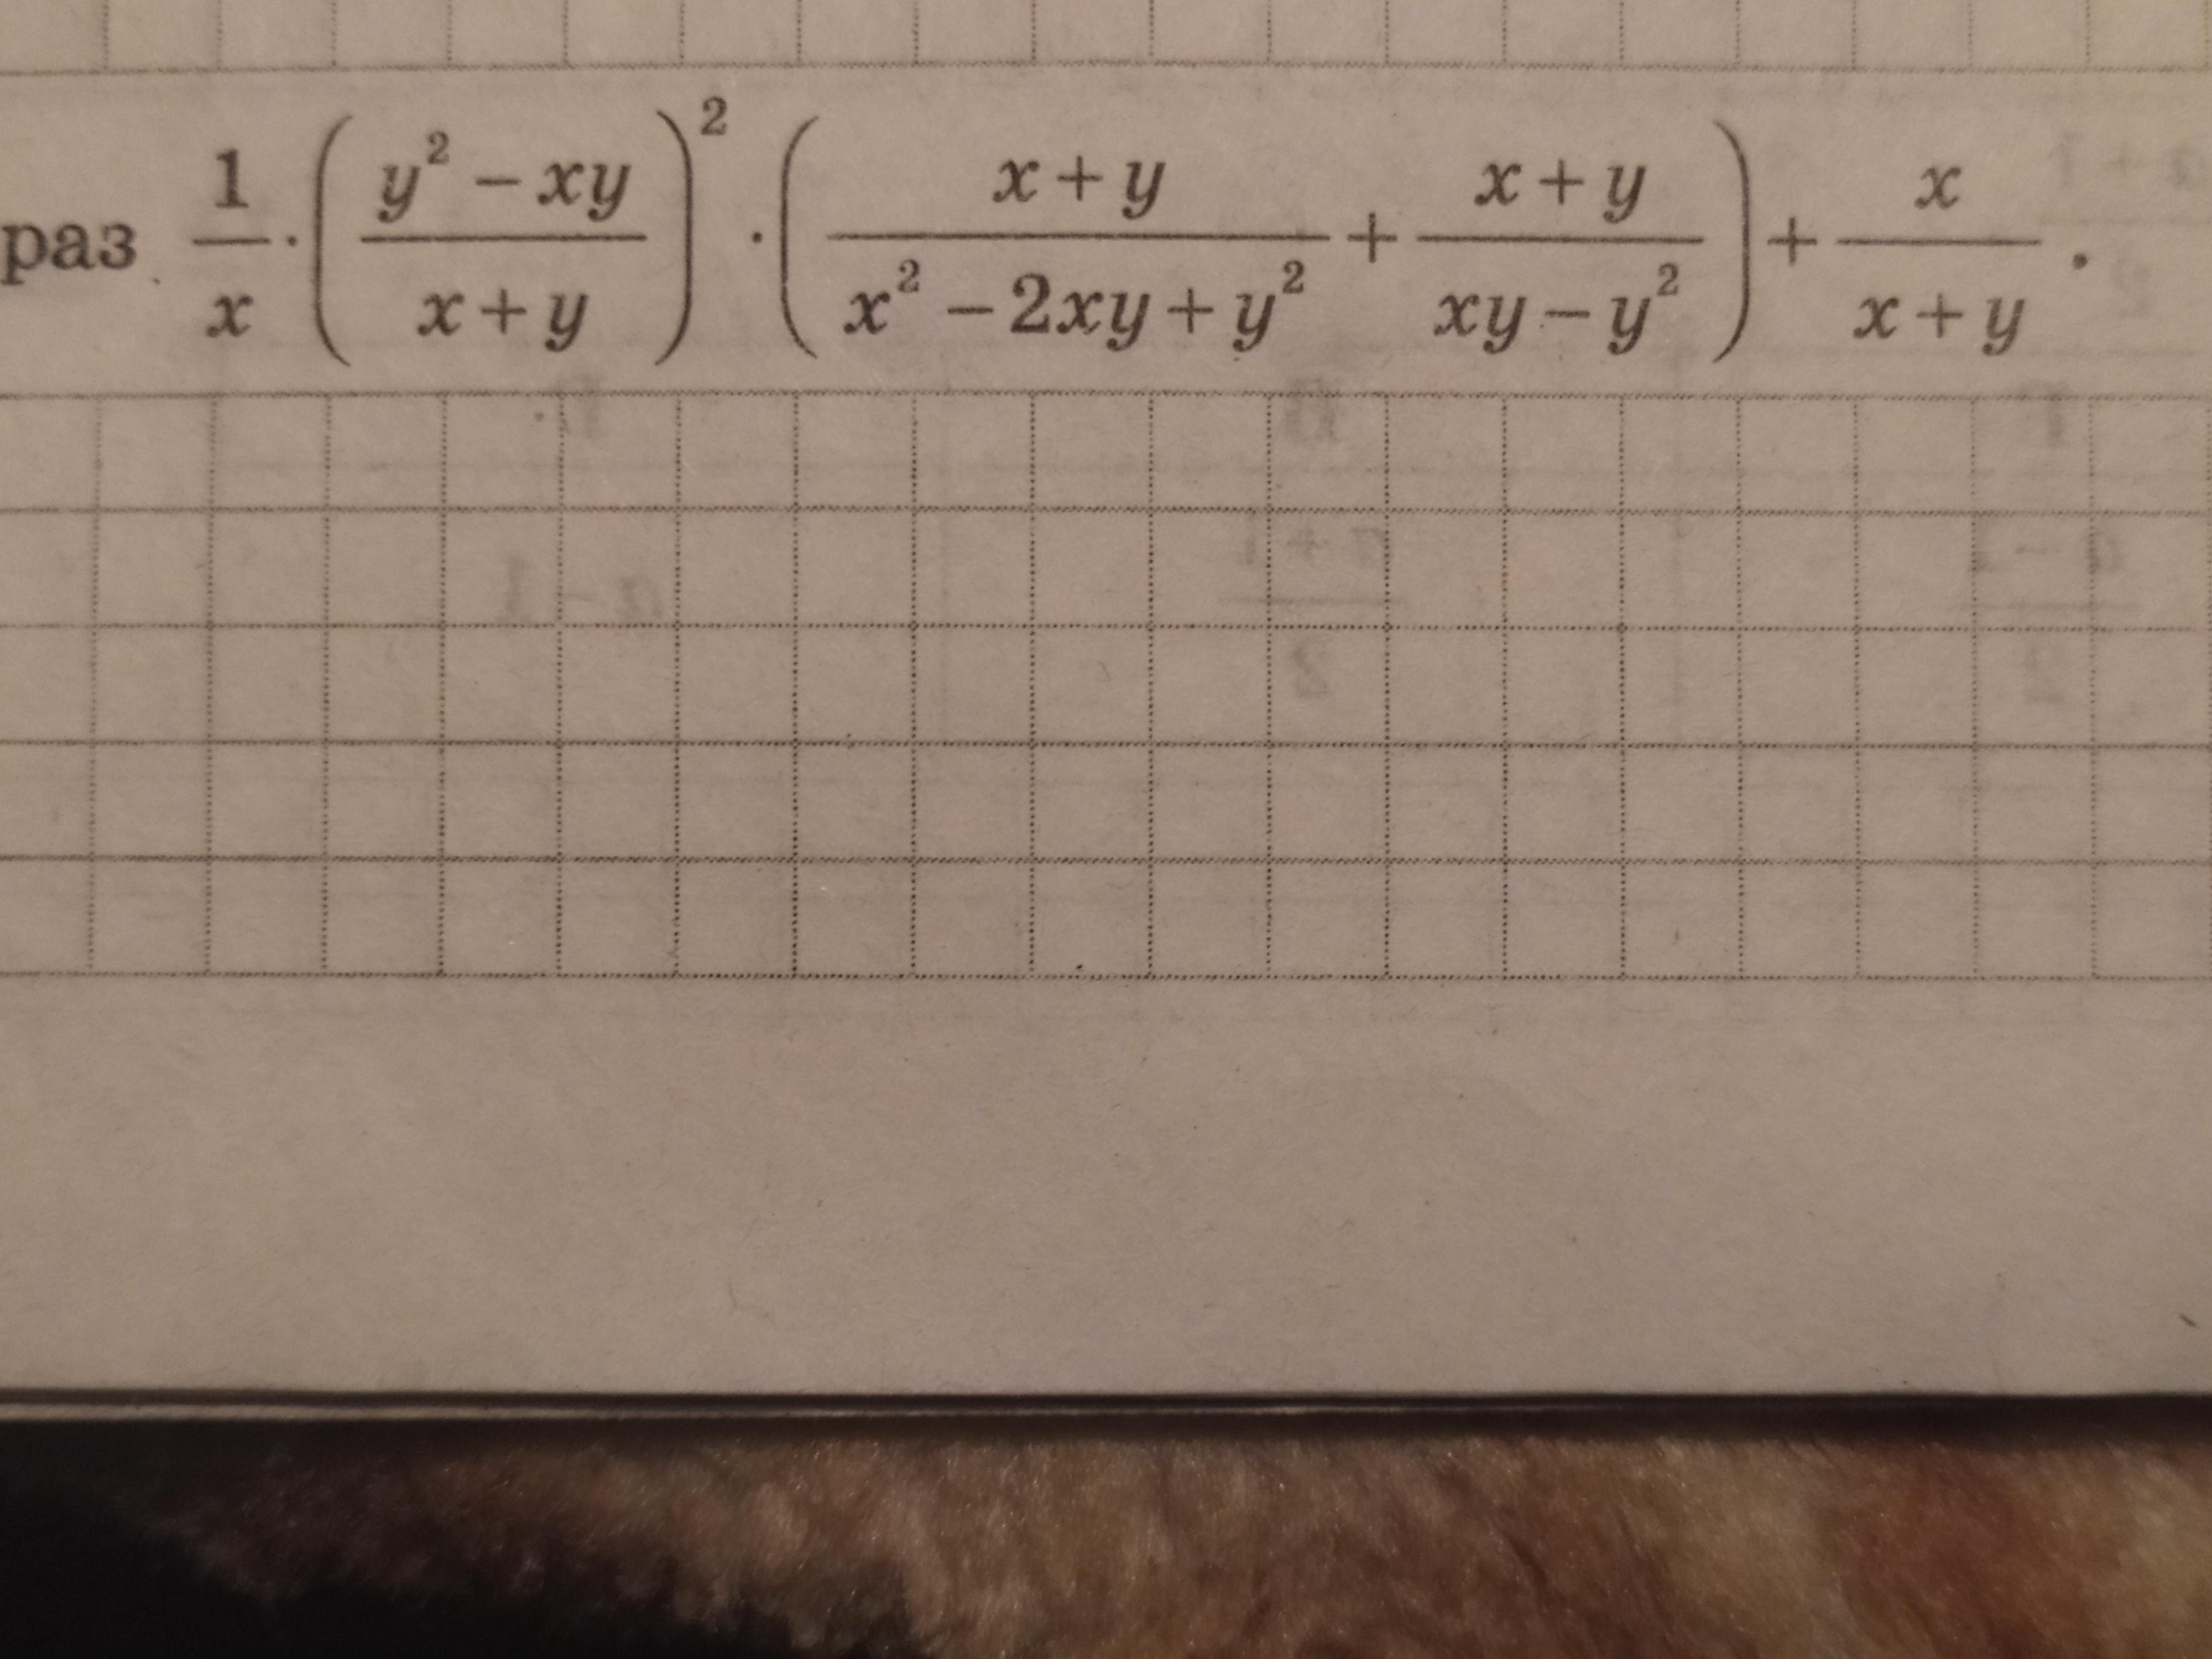 раз 1/x · ((y² – xy)/(x + y))² · ((x + y)/(x² – 2xy + y²) + (x + y)/(xy – y²)) + x/(x + y).